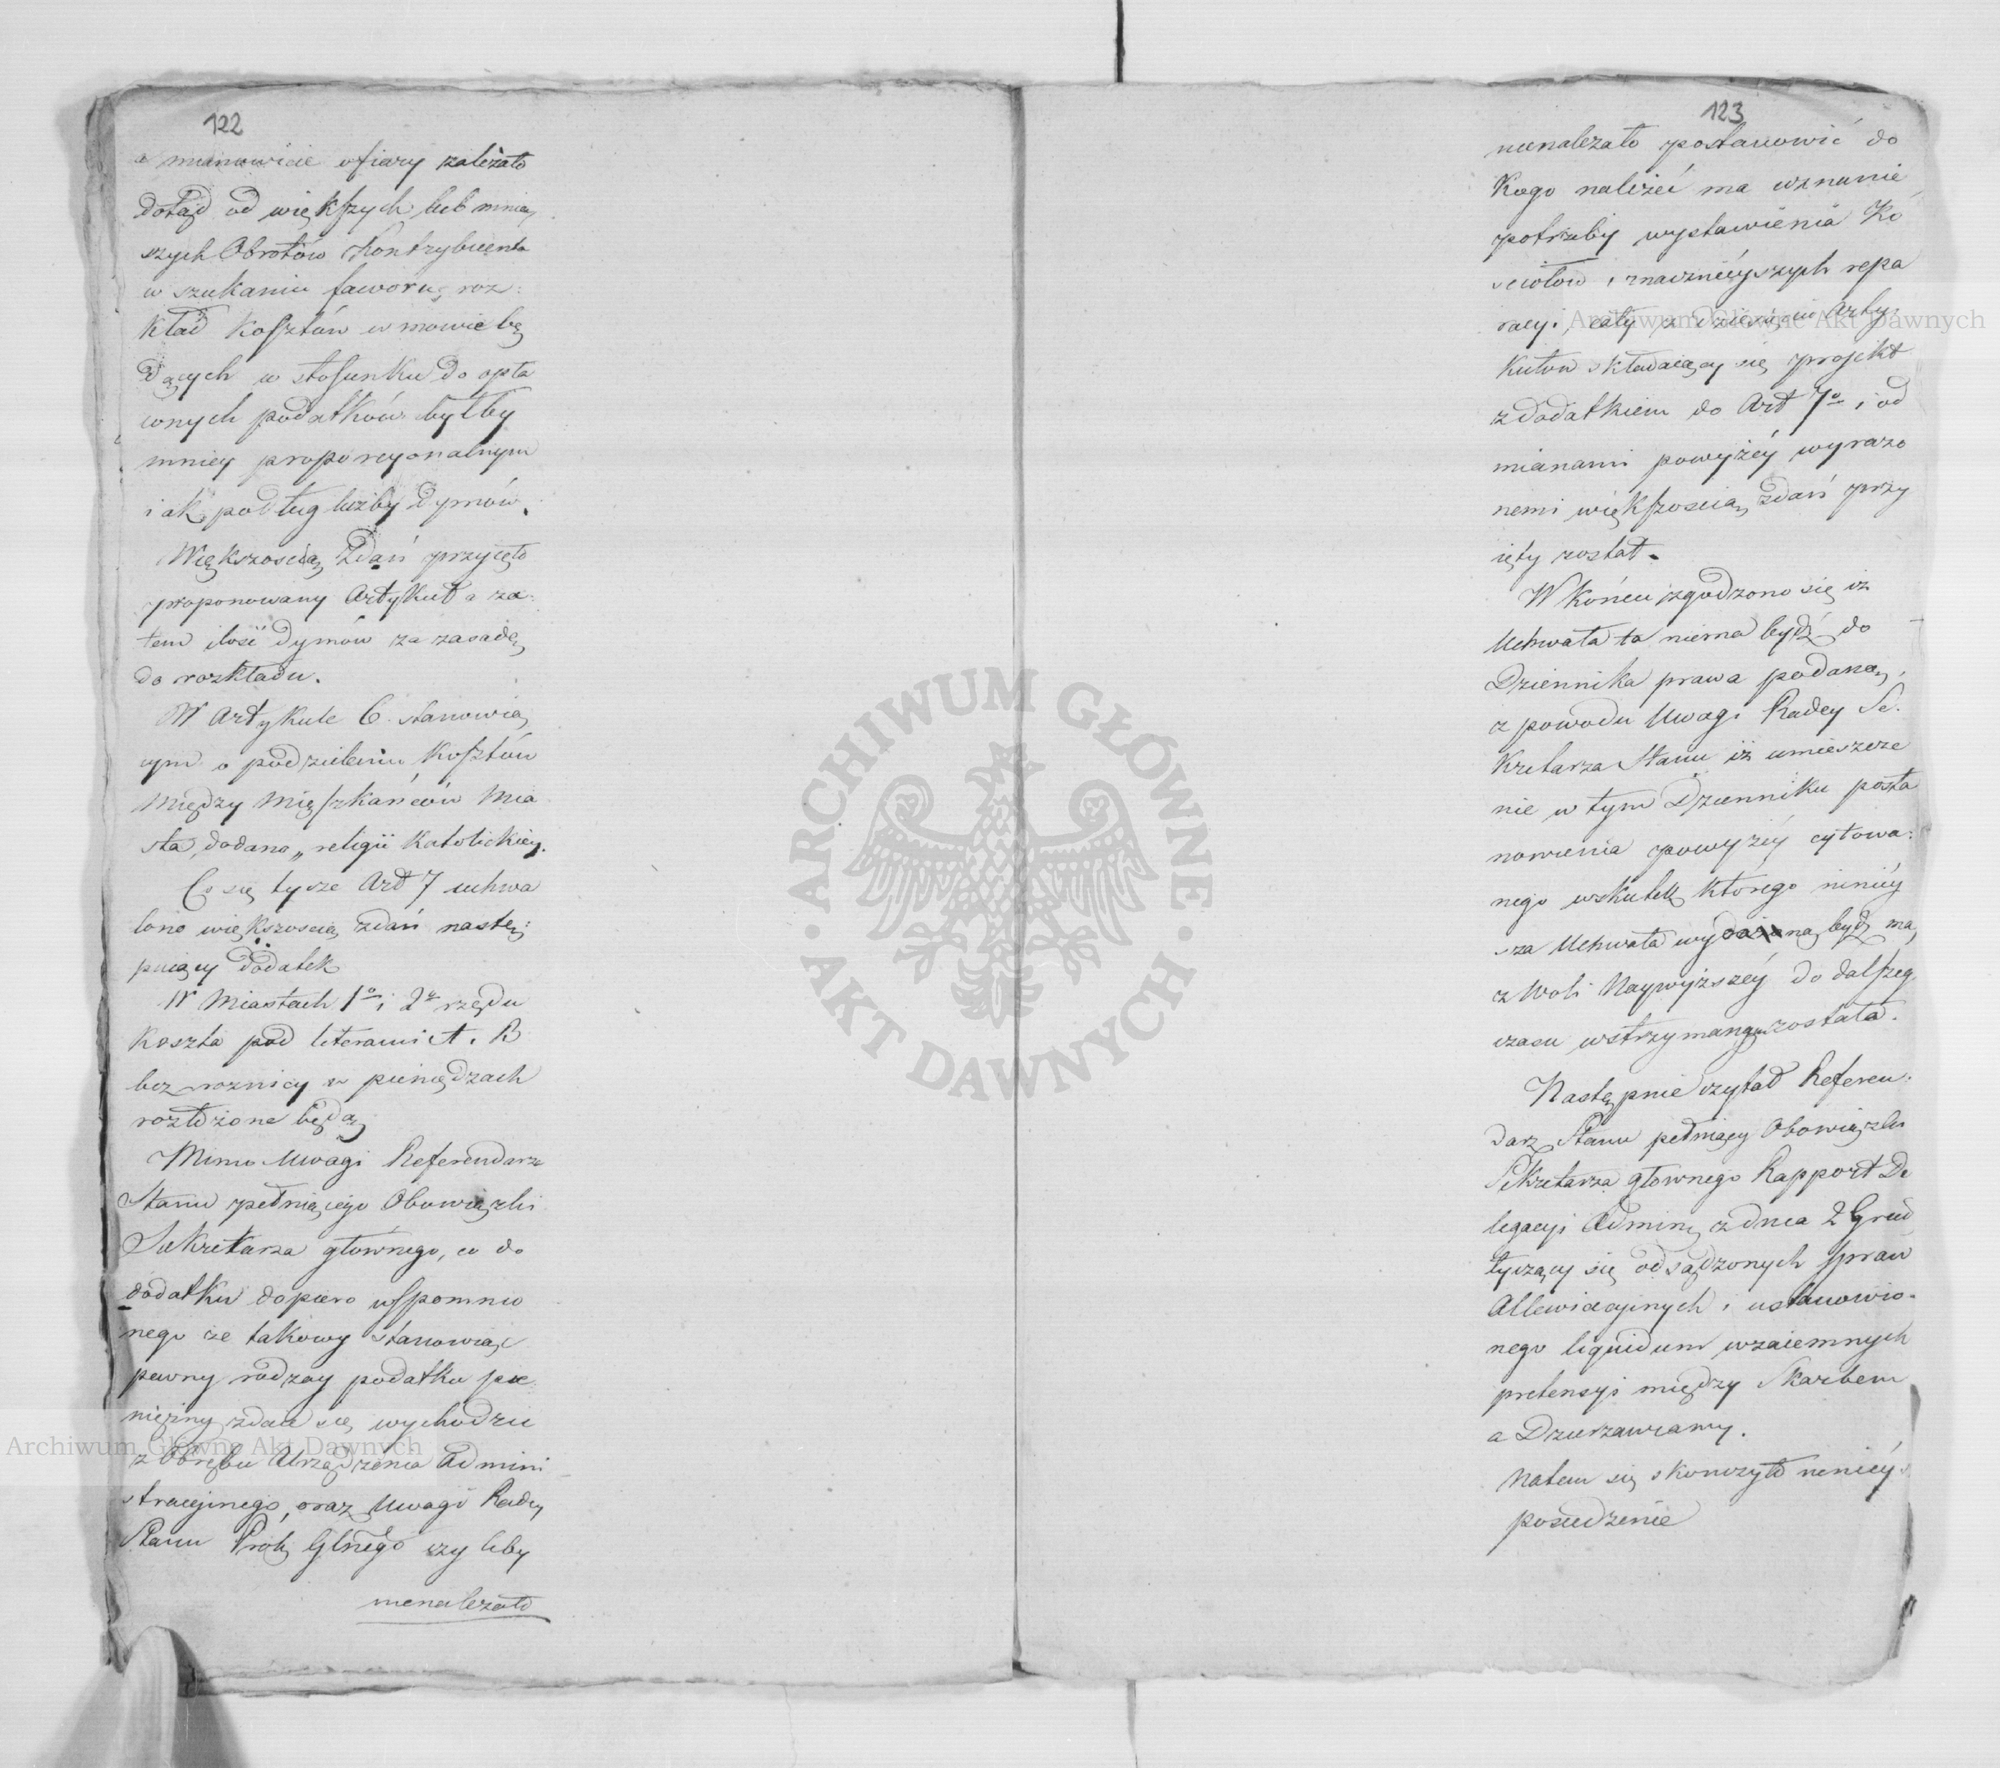 122
a mianowicie ofiary zależało
dotąd od więkſzych lub mniey
szych Obrotów Kontrybuenta
w szukaniu faworu, roz:
kład koſztów w mowie bę
dących w stosunku do opła
conych podatków byłby
mniey proporcyonalnym
iak podług liczby dymów.
Większością Zdań przyięto
proponowany Artykuł a za:
tem ilość dymów za zasadę
do rozkładu.
W Artykule 6. stanowią
cym o podzieleniu Koſztów
między Mieſzkańców Mia
sta, dodano „religii Katolickiey.
Co się tycze Art 7 uchwa
lono większością zdań nastę:
puiący dodatek
W Miastach 1o i 2o rzędu
Koszta pod literami A. B
bez roznicy w pieniędzach
rozłożone będą
Mimo Uwagi Referendarza
Stanu pełniącego Obowiązki
Sekretarza głównego, co do
dodatku dopiero wſpomnio
nego że takowy stanowiąc
pewny rodzay podatku pie
niężny zdaie się wychodzić
z Obrębu Urządzenia Admini
stracyinego, oraz Uwagi Radcy
Stanu Prok Glnego czyliby
nienależało
123
nienależało postanowić do
Kogo należeć ma uznanie
potrzeby wystawienia Ko
sciołow i znacznieyszych repa
racyi, cały z dziewięciu Arty:
Kułow składaiący się projekt
z dodatkiem do Art 7o i od
mianami powyżéy wyrażo
nemi więkſzoscią Zdań przy
ięty został.
W Końcu zgodzono się iż
Uchwała ta niema bydź do
Dziennika prawa podaną,
z powodu Uwagi Radcy Se
Kretarza Stanu iż umieszcze
nie w tym Dzienniku posta
nowienia powyżéy cytowa:
nego wskutek Którego niniéy
sza Uchwała wydaną bydź ma,
z Woli Naywyższéy do dalſzeg
czasu wstrzymanem zostało.
Następnie czytał Referen:
darz Stanu pełniący Obowiązki
Sekretarza głownego Rapport De
legacyi Admin, z dnia 2 Grud
tyczący się odsądzonych ſpraw
Allewiacyinych i ustanowio-
nego liquidum wzaiemnych
pretensyi między Skarbem
a Dzierzawcamy.
Natem się skonczyło ninieys
posiedzenie
Archiwum Główne Akt Dawnych
Archiwum Główne Akt Dawnych
ARCHIWUM GŁÓWNE
AKT DAWNYCH